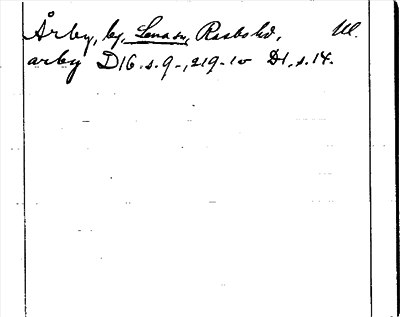 Årby, by, Lena sn, Rasbo hd, Ul.
arby D16.s.9-, 219-10 D1, s.14.